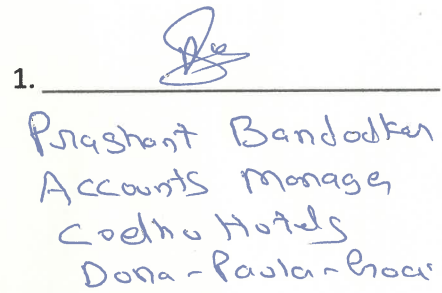 1.
Prashant Bandodkar
Accounts Manager
Coelho Hotels
Dona-Paula-Goa